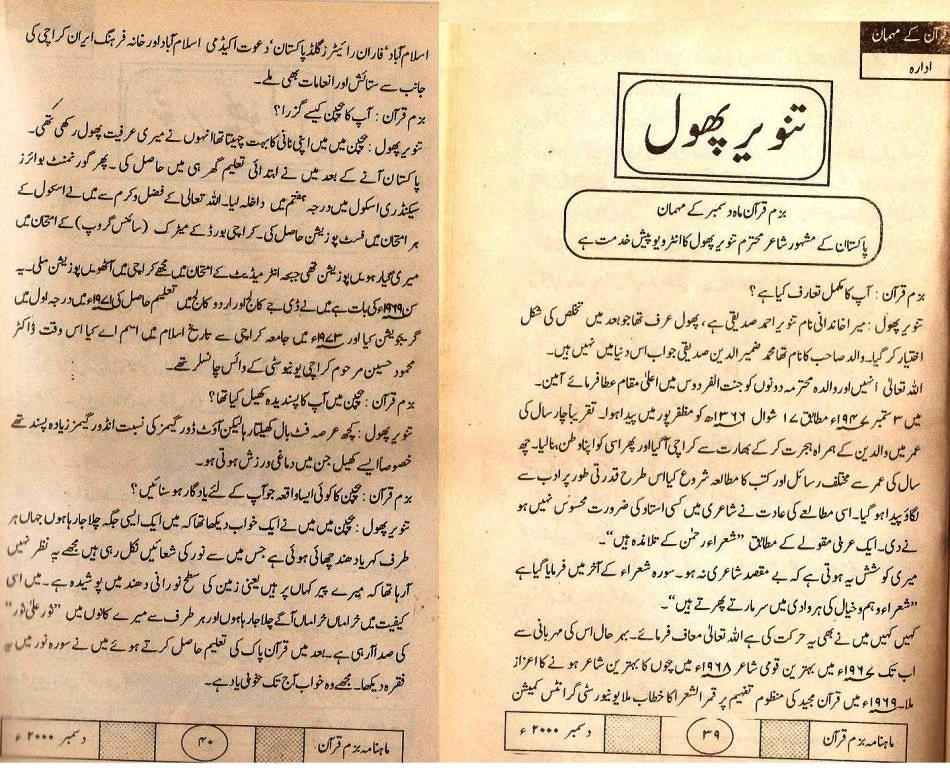 قرآن کے مہمان
ادارہ
تنویر پھول
بزم قرآن ماہ دسمبر کے مہمان
پاکستان کے مشہور شاعر محترم تنویر پھول کا انٹرویو پیش خدمت ہے
بزم قرآن : آپ کا مکمل تعارف کیا ہے؟
تنویر پھول : میرا خاندانی نام تنویر احمد صدیقی ہے، پھول عرف تھا جو بعد میں تخلص کی شکل
اختیار کر گیا۔ والد صاحب کا نام تھا محمد ضمیر الدین صدیقی جو اب اس دنیا میں نہیں ہیں۔
اللہ تعالیٰ انہیں اور والدہ محترمہ دونوں کو جنت الفردوس میں اعلیٰ مقام عطا فرمائے آمین۔
میں ۳ ستمبر ۱۹۴۷ء مطابق ۱۷ شوال ۱۳۶۶ھ کو مظفر پور میں پیدا ہوا۔ تقریباً چار سال کی
عمر میں والدین کے ہمراہ ہجرت کر کے بھارت سے کراچی آگیا اور پھر اسی کو اپنا وطن بنا لیا۔ چھ
سال کی عمر سے مختلف رسائل اور کتب کا مطالعہ شروع کیا اس طرح قدرتی طور پر ادب سے
لگاؤ پیدا ہو گیا۔ اسی مطالعے کی عادت نے شاعری میں کسی استاد کی ضرورت محسوس نہیں ہو
نے دی۔ ایک عربی مقولے کے مطابق ”شعراء رحمٰن کے تلامذہ ہیں“۔
میری کوشش یہ ہوتی ہے کہ بے مقصد شاعری نہ ہو۔ سورہ شعراء کے آخر میں فرمایا گیا ہے
”شعراء وہم و خیال کی ہر وادی میں سر مارتے پھرتے ہیں“۔
کہیں کہیں میں نے بھی یہ حرکت کی ہے اللہ تعالیٰ معاف فرمائے۔ بہر حال اس کی مہربانی سے
اب تک ۱۹۶۷ء میں بہترین قومی شاعر ۱۹۶۸ء میں بچوں کا بہترین شاعر ہونے کا اعزاز
ملا۔ ۱۹۶۹ء میں قرآن مجید کی منظوم تفہیم پر قمر الشعرا کا خطاب ملا یونیورسٹی گرانٹس کمیشن
ماہنامہ بزم قرآن
۳۹
دسمبر ۲۰۰۰ء
اسلام آباد‘ فاران رائیٹرز گلڈ پاکستان‘ دعوت اکیڈمی اسلام آباد اور خانہ فرہنگ ایران کراچی کی
جانب سے ستائش اور انعامات بھی ملے۔
بزم قرآن : آپ کا بچپن کیسے گزرا؟
تنویر پھول : بچپن میں میں اپنی نانی کا بہت چہیتا تھا انہوں نے میری عرفیت پھول رکھی تھی۔
پاکستان آنے کے بعد میں نے ابتدائی تعلیم گھر ہی میں حاصل کی۔ پھر گورنمنٹ بوائز
سیکنڈری اسکول میں درجہ ہفتم میں داخلہ لیا۔ اللہ تعالیٰ کے فضل و کرم سے میں نے اسکول کے
ہر امتحان میں فسٹ پوزیشن حاصل کی۔ کراچی بورڈ کے میٹرک (سائنس گروپ) کے امتحان میں
میری گیارہویں پوزیشن تھی جبکہ انٹر میڈیٹ کے امتحان میں مجھے کراچی میں آٹھویں پوزیشن ملی۔ یہ
سن ۱۹۶۹ء کی بات ہے میں نے ڈی جے کالج اور اردو کالج میں تعلیم حاصل کی ۱۹۷۱ء میں درجہ اول میں
گریجویشن کیا اور ۱۹۷۳ء میں جامعہ کراچی سے تاریخ اسلام میں ایم اے کیا اس وقت ڈاکٹر
محمود حسین مرحوم کراچی یونیورسٹی کے وائس چانسلر تھے۔
بزم قرآن : بچپن میں آپ کا پسندیدہ کھیل کیا تھا؟
تنویر پھول : کچھ عرصہ فٹ بال کھیلتا رہا لیکن آؤٹ ڈور گیمز کی نسبت انڈور گیمز زیادہ پسند تھے
خصوصاً ایسے کھیل جن میں دماغی ورزش ہوتی ہو۔
بزم قرآن : بچپن کا کوئی ایسا واقعہ جو آپ کے لئے یادگار ہو سنائیں؟
تنویر پھول : بچپن میں میں نے ایک خواب دیکھا تھا کہ میں ایک ایسی جگہ چلا جا رہا ہوں جہاں ہر
طرف کہر یا دھند چھائی ہوئی ہے جس میں سے نور کی شعائیں نکل رہی ہیں مجھے یہ نظر نہیں
آرہا تھا کہ میرے پیر کہاں پر ہیں یعنی زمین کی سطح نورانی دھند میں پوشیدہ ہے۔ میں اسی
کیفیت میں خراماں خراماں آگے چلا جا رہا ہوں اور ہر طرف سے میرے کانوں میں ”نور علیٰ نور“
کی صدا آرہی ہے۔ بعد میں قرآن پاک کی تعلیم حاصل کرتے ہوئے میں نے سورہ نور میں یہ
فقرہ دیکھا۔ مجھے وہ خواب آج تک بخوبی یاد ہے۔
ماہنامہ بزم قرآن
۴۰
دسمبر ۲۰۰۰ء